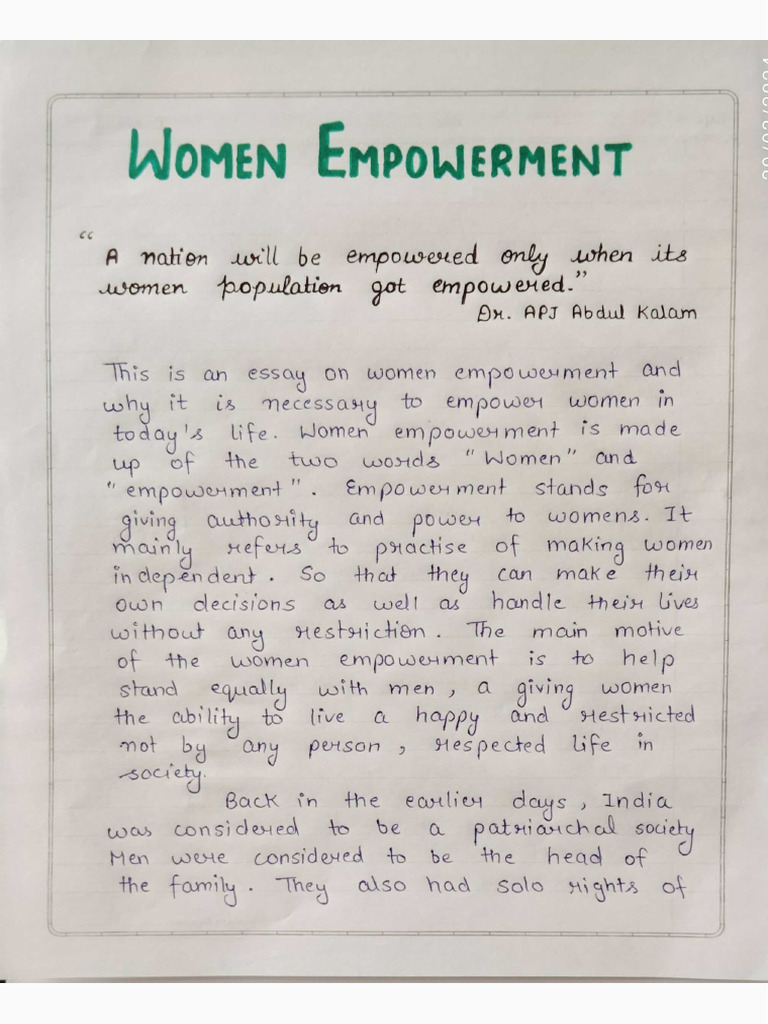 WOMEN EMPOWERMENT
"A nation will be empowered only when its
women population got empowered."
Dr. APJ Abdul Kalam
This is an essay on women empowerment and
why it is necessary to empower women in
today's life. Women empowerment is made
up of the two words "Women" and
"empowerment". Empowerment stands for
giving authority and power to womens. It
mainly refers to practise of making women
independent. So that they can make their
own decisions as well as handle their lives
without any restriction. The main motive
of the women empowerment is to help
stand equally with men, a giving women
the ability to live a happy and restricted
not by any person, respected life in
society.
Back in the earlier days, India
was considered to be a patriarchal society
Men were considered to be the head of
the family. They also had solo rights of